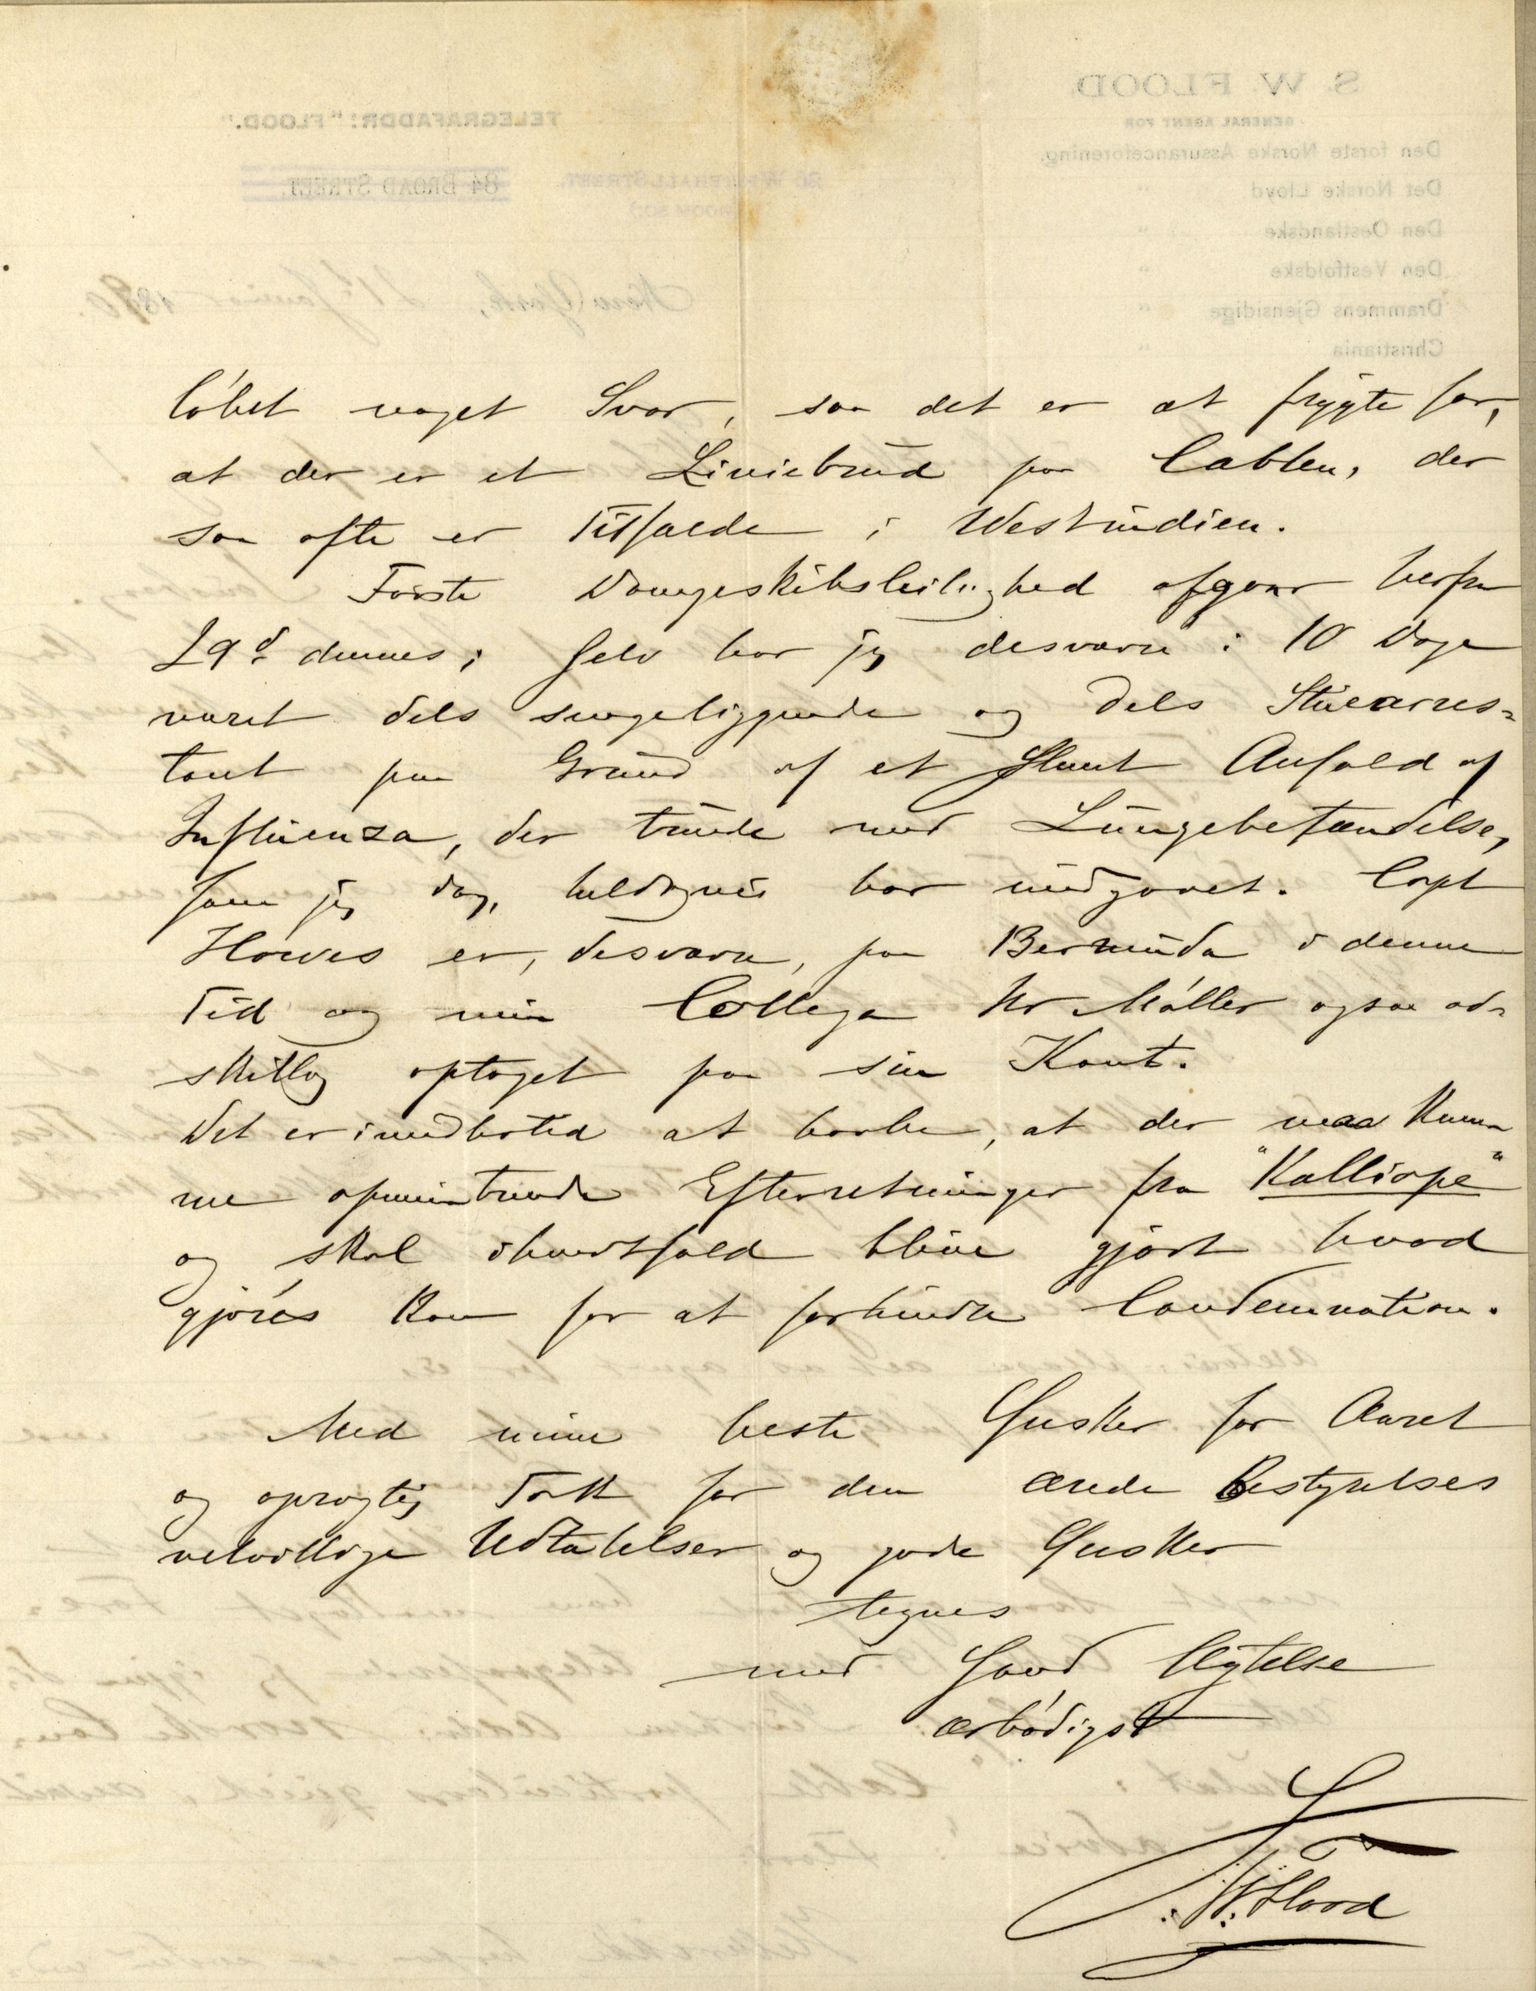 løbet noget Svar, saa det er at frygte for,
at der er et Liniebrud paa Cablen, der
saa ofte er Tilfælde i Westindien.
Første Dampskibsleilighed afgaar herfra
29d dennes; Selv har jeg desværre i 10 Dage
været dels sengeliggende og dels Stuearres-
tant paa Grund af et slemt Anfald af
Influenza, der truede med Lungebetændelse,
som jeg dog, heldigvis har undgaaet. Capt
Howes er, desværre, paa Bermuda i denne
Tid og min Collega Hr Møller ogsaa ad-
skillig optaget paa sin Kant.
Det er imidlertid at haabe, at der maa kom-
me opmuntrende Efterretninger fra "Kalliope"
og skal ihvertfald blive gjort hvad
gjøres kan for at forhindre Condemnation.
Med mine beste Ønsker for Aaret
og oprigtig Takk for den ærede Bestyrelses
velvillige Udtalelser og gode Ønsker
tegnes
med Høiagtelse
ærbødigst
S. W. Flood
S. W. FLOOD.
GENERAL AGENT FOR
Den første Norske Assuranceforening.
Det Norske Lloyd "
Den Oestlandske "
Den Vestfoldske "
Drammens Gjensidige "
Christiania "
TELEGRAFADDR: "FLOOD."
84 BROAD STREET.
26 WHITEHALL STREET.
New York, d 21 Januar 1890.